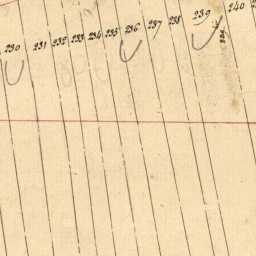 230 231 232 233 234 235 236 237 238 239 240